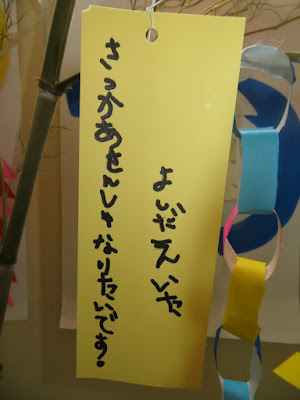 さっかあせんしゅなりたいです!
よしだえいた